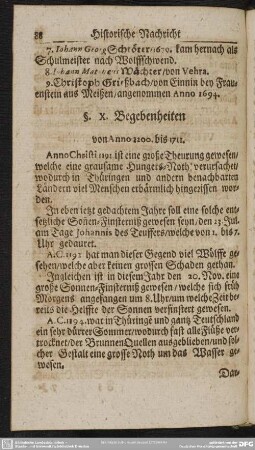 88 Historische Nachricht
7. Johann Georg Schröter/1670. kam hernach als
Schulmeister nach Wolffschwend.
8. Johann Matthaeus Wächter/von Vehra.
9. Christoph Grießbach/von Einnin bey Frauen-
stein aus Meißen/angenommen Anno 1694.
§. X. Begebenheiten
von Anno 1100. bis 1711.
Anno Christi 1191 ist eine große Theurung gewesen/
welche eine grausame Hungers-Noth verursachet/
wodurch in Thüringen und andern benachbarten
Ländern viel Menschen erbärmlich hingerissen wor-
den.
In eben jetzt gedachtem Jahre soll eine solche ent-
setzliche Sonen-Finsterniß gewesen seyn. den 23 Jul.
am Tage Johannis des Teuffers/welche von 1. bis 7.
Uhr gedauret.
A.C. 1191 hat man dieser Gegend viel Wölffe ge-
sehen/welche aber keinen grossen Schaden gethan.
Ingleichen ist in diesem Jahr den 20. Nov. eine
große Sonnen-Finsterniß gewesen/welche sich früh
Morgens angefangen um 8. Uhr/um welche Zeit be-
reits die Helffte der Sonnen verfinstert gewesen.
A.C. 1194. wat in Thüringē und gantz Teutschland
ein sehr dürrer Sommer/wodurch fast alle Flüße ver-
trocknet/der Brunnen Quellen ausgeblieben/und sol-
cher Gestalt eine grosse Noth um das Wasser ge-
wesen.
Dar-